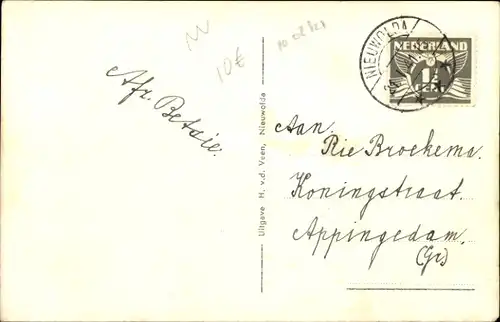 10€
Afz. Betsie.
Uitgave H. v.d. Veen, Nieuwolda
NIEUWOLDA
NEDERLAND
1½
CENT
Aan.
Rie Broekema.
Koningstraat.
Appingedam.
(Gr)